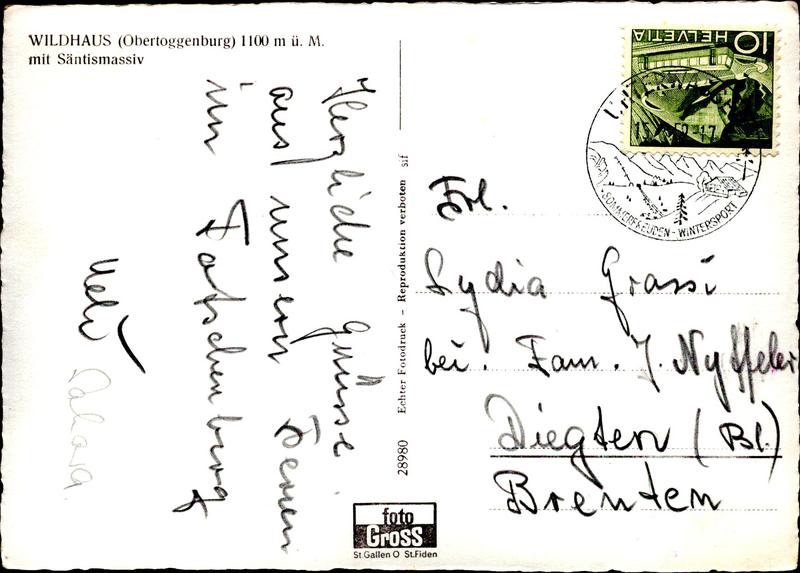 WILDHAUS (Obertoggenburg) 1100 m ü. M.
mit Säntismassiv
Herzliche Grüsse
aus unsern Ferien
im
Ueli
28980 Echter Fotodruck - Reproduktion verboten sif
foto
Gross
St. Gallen O St. Fiden
HELVETIA
10
UNTERWA
SOMMERFREUDEN - WINTERSPORT
Frl.
Lydia Grassi
bei. Fam. J. Nyffeler
Diegten (Bl.)
Brenten